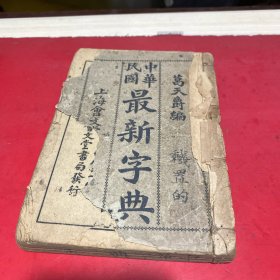 葛天爵編
中華
民國
最新字典
上海會文堂書局發行